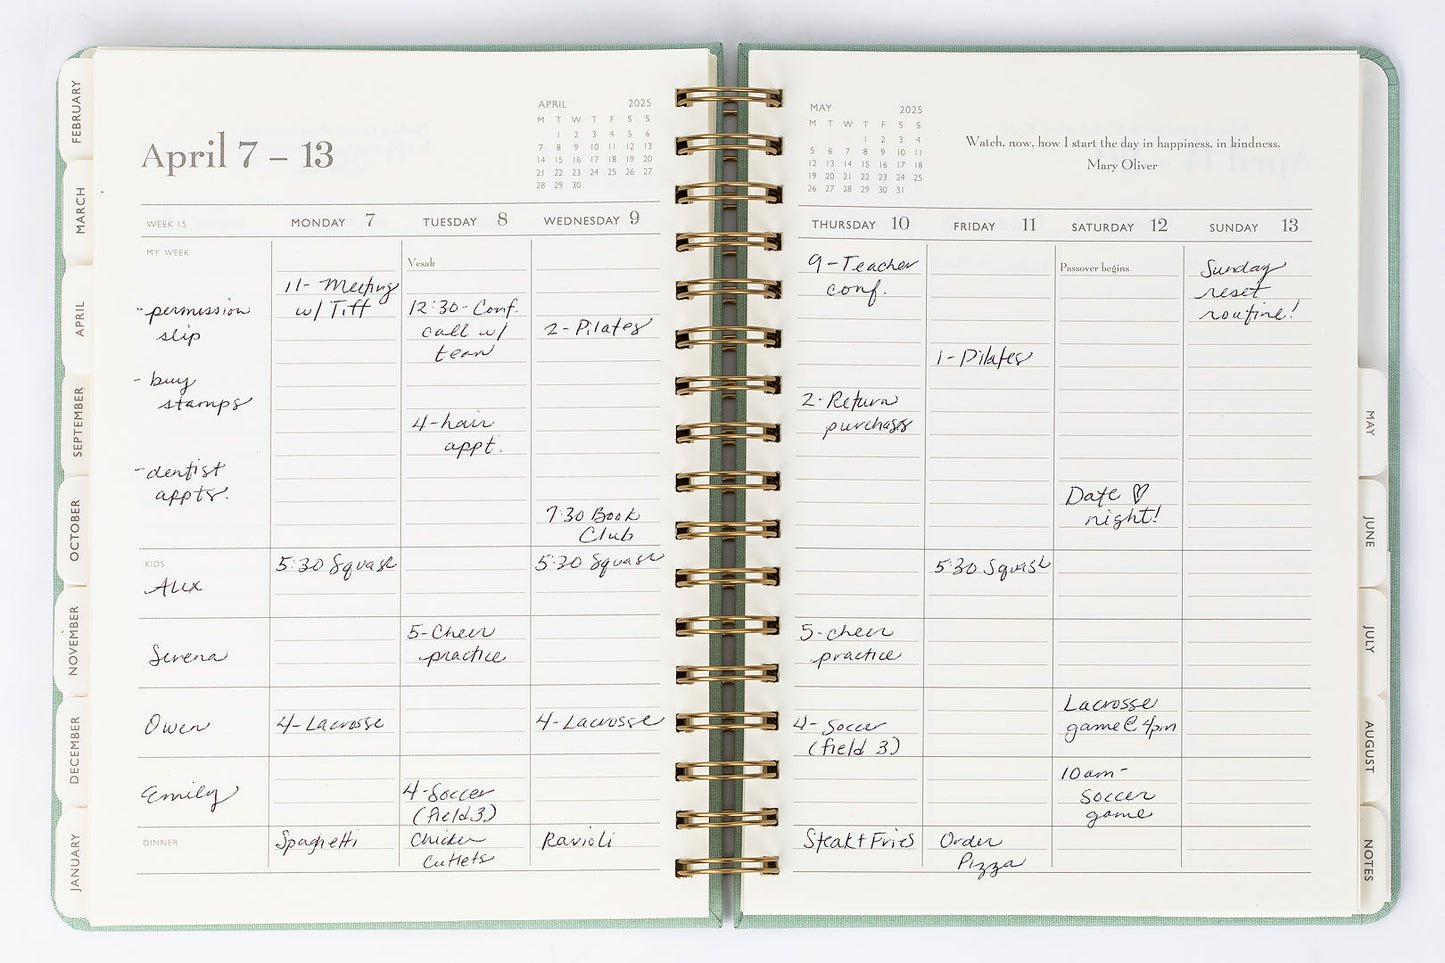 FEBRUARY
MARCH
APRIL
SEPTEMBER
OCTOBER
NOVEMBER
DECEMBER
JANUARY
April 7 – 13
APRIL 2025
M T W T F S S
1 2 3 4 5 6
7 8 9 10 11 12 13
14 15 16 17 18 19 20
21 22 23 24 25 26 27
28 29 30
WEEK 15
MONDAY 7
TUESDAY 8
WEDNESDAY 9
MY WEEK
- permission
slip
- buy
stamps
- dentist
appts.
11- Meeting
w/ Tiff
Vesak
12:30-Conf.
call w/
team
4-hair
appt.
2-Pilates
7:30 Book
Club
KIDS
Alex
5:30 Squash
5:30 Squash
Serena
5-Cheer
practice
Owen
4-Lacrosse
4-Lacrosse
Emily
4-Soccer
(field 3)
DINNER
Spaghetti
Chicken
Cutlets
Ravioli
MAY 2025
M T W T F S S
1 2 3 4
5 6 7 8 9 10 11
12 13 14 15 16 17 18
19 20 21 22 23 24 25
26 27 28 29 30 31
Watch, now, how I start the day in happiness, in kindness.
Mary Oliver
THURSDAY 10
FRIDAY 11
SATURDAY 12
SUNDAY 13
9-Teacher
conf.
2-Return
purchases
1-Pilates
Passover begins
Date ♡
night!
Sunday
reset
routine!
5:30 Squash
5-cheer
practice
4-Soccer
(field 3)
Lacrosse
game@4pm
10am-
Soccer
game
Steak+Fries
Order
Pizza
MAY
JUNE
JULY
AUGUST
NOTES